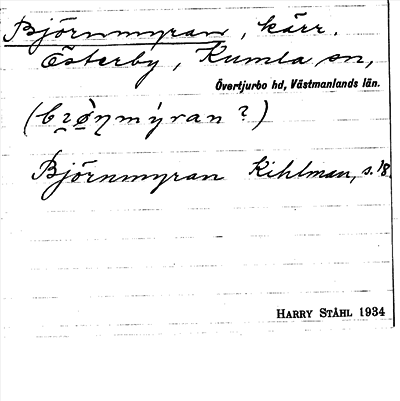 Björnmyran, kärr.
Österby, Kumla sn,
Övertjurbo hd, Västmanlands län.
Björnmyran Kihlman, s. 18
HARRY STÅHL 1934